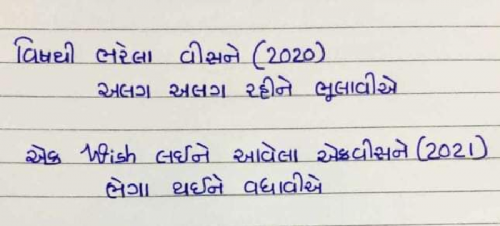 વિષથી ભરેલા વીસને (2020)
અલગ અલગ રહીને ભૂલાવીએ
એક Wish લઈને આવેલા એકવીસને (2021)
ભેગા થઈને વધાવીએ